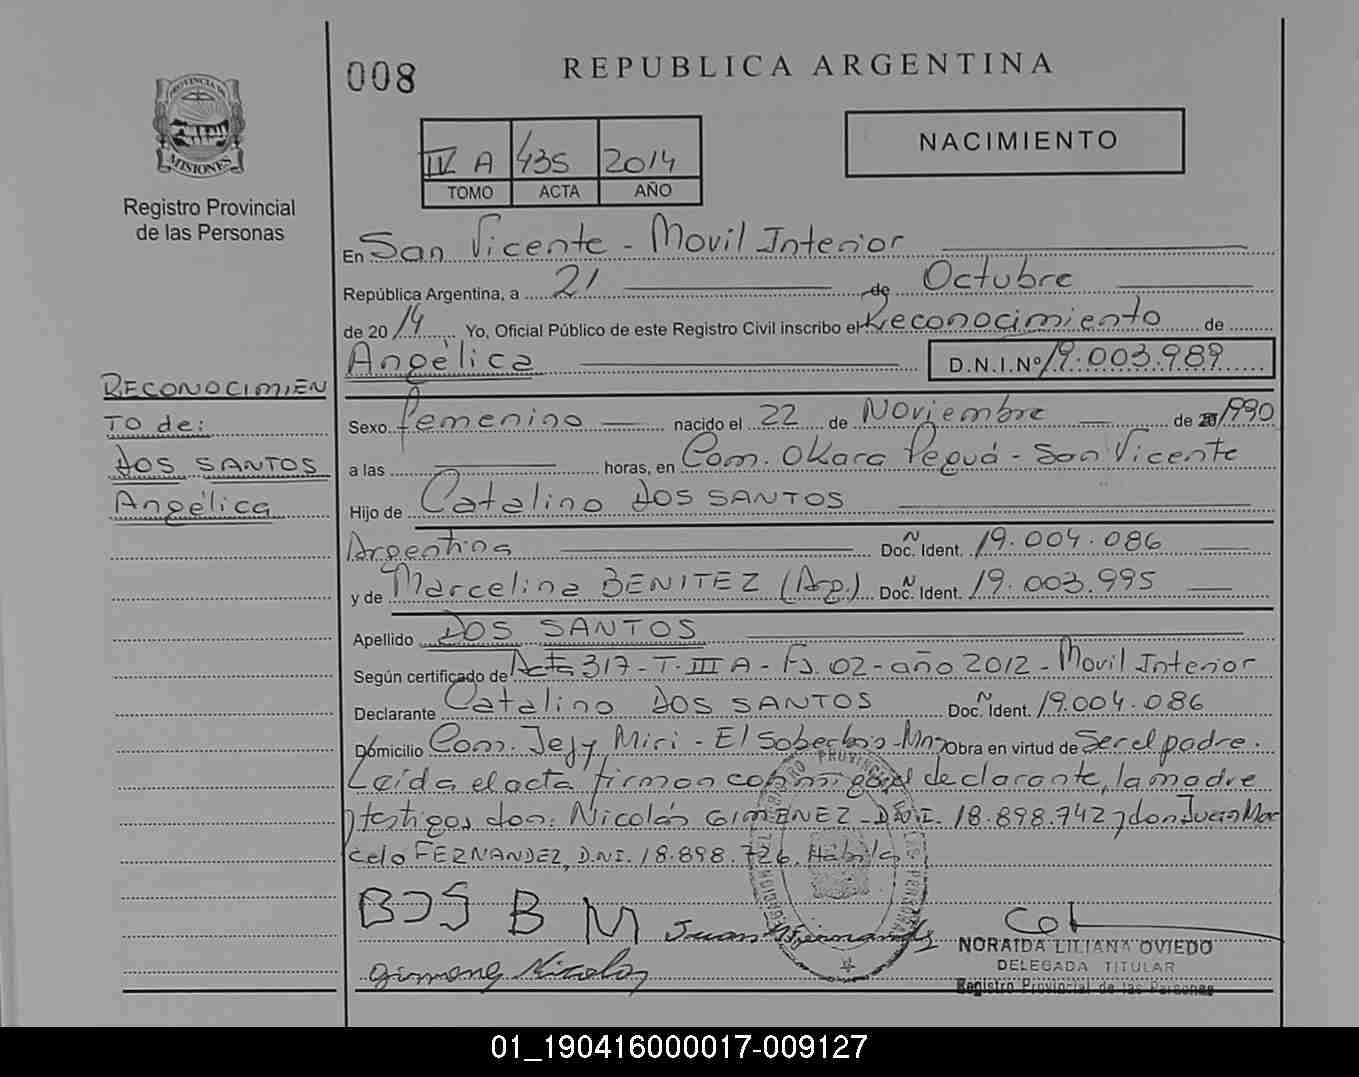 008
REPUBLICA ARGENTINA
PROVINCIA DE
MISIONES
Registro Provincial
de las Personas
IV A 435 2014
TOMO ACTA AÑO
NACIMIENTO
En San Vicente - Movil Interior
República Argentina, a 21 de Octubre
de 2014 Yo, Oficial Público de este Registro Civil inscribo el Reconocimiento de
Angélica D.N.I.Nº 19.003.989
RECONOCIMIEN
TO de:
DOS SANTOS
Angélica
Sexo femenino nacido el 22 de Noviembre de 1990
a las horas, en Com. Okara Peguá - San Vicente
Hijo de Catalino DOS SANTOS
Argentina Doc. Ident. 19.004.086
y de Marcelina BENITEZ (Arg.) Doc. Ident. 19.003.995
Apellido DOS SANTOS
Según certificado de Acta 317 - T. III A - Fs. 02 - año 2012 - Movil Interior
Declarante Catalino DOS SANTOS Doc. Ident. 19.004.086
Domicilio Com. Jejy Miri - El Soberbio - Mnes Obra en virtud de Ser el padre.
Leída el acta firman conmigo el declarante, la madre
y testigos don: Nicolás GIMENEZ - D.N.I. 18.898.742 y don Juan Mar
celo FERNANDEZ, D.N.I. 18.898.726. Hábiles
BDS B M Juan Fernandez
Gimenez Nicolas
NORAIDA LILIANA OVIEDO
DELEGADA TITULAR
Registro Provincial de las Personas
01_190416000017-009127